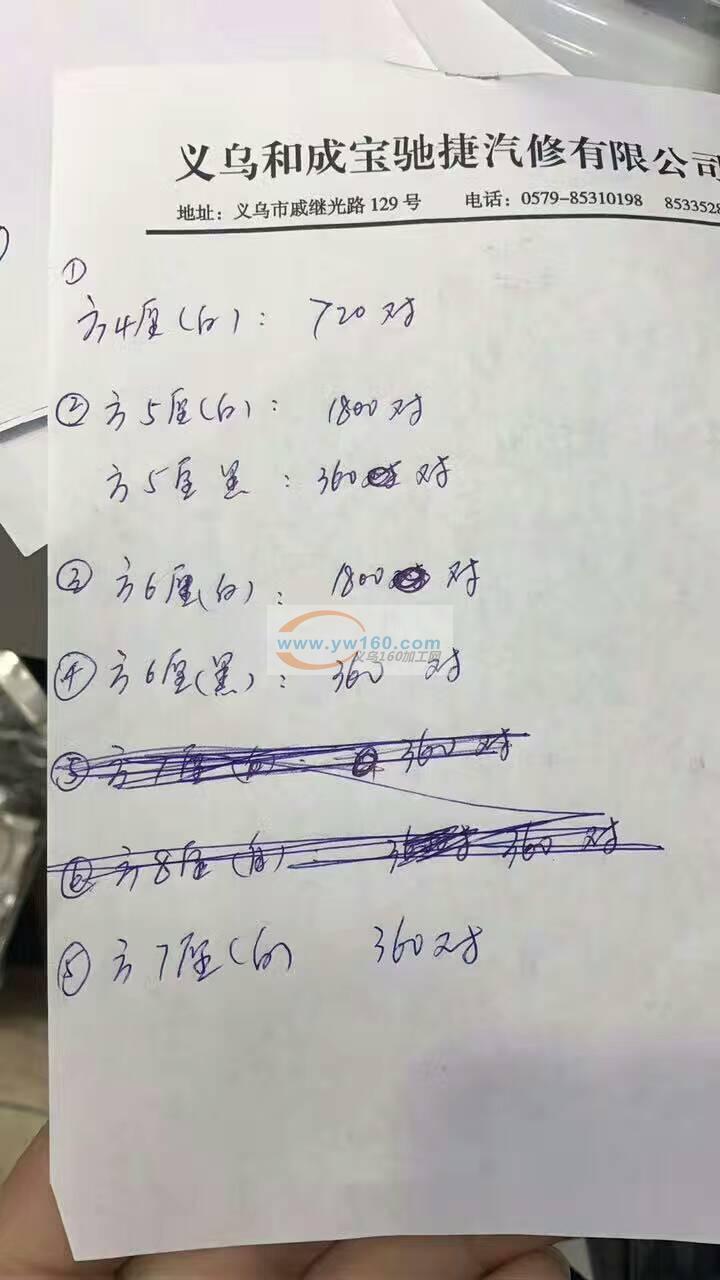 义乌和成宝驰捷汽修有限公司
地址：义乌市戚继光路 129 号 电话：0579-85310198 8533528
①
方4厘(白)： 720对
② 方5厘(白)： 1800对
方5厘 黑 ：360 对
③ 方6厘(白)： 1800 对
www.yw160.com
义乌160加工网
④ 方6厘(黑)： 360 对
⑤ 方7厘(白)： 360 对
⑥ 方8厘(白)： 360 对
⑤ 方7厘(白) 360对